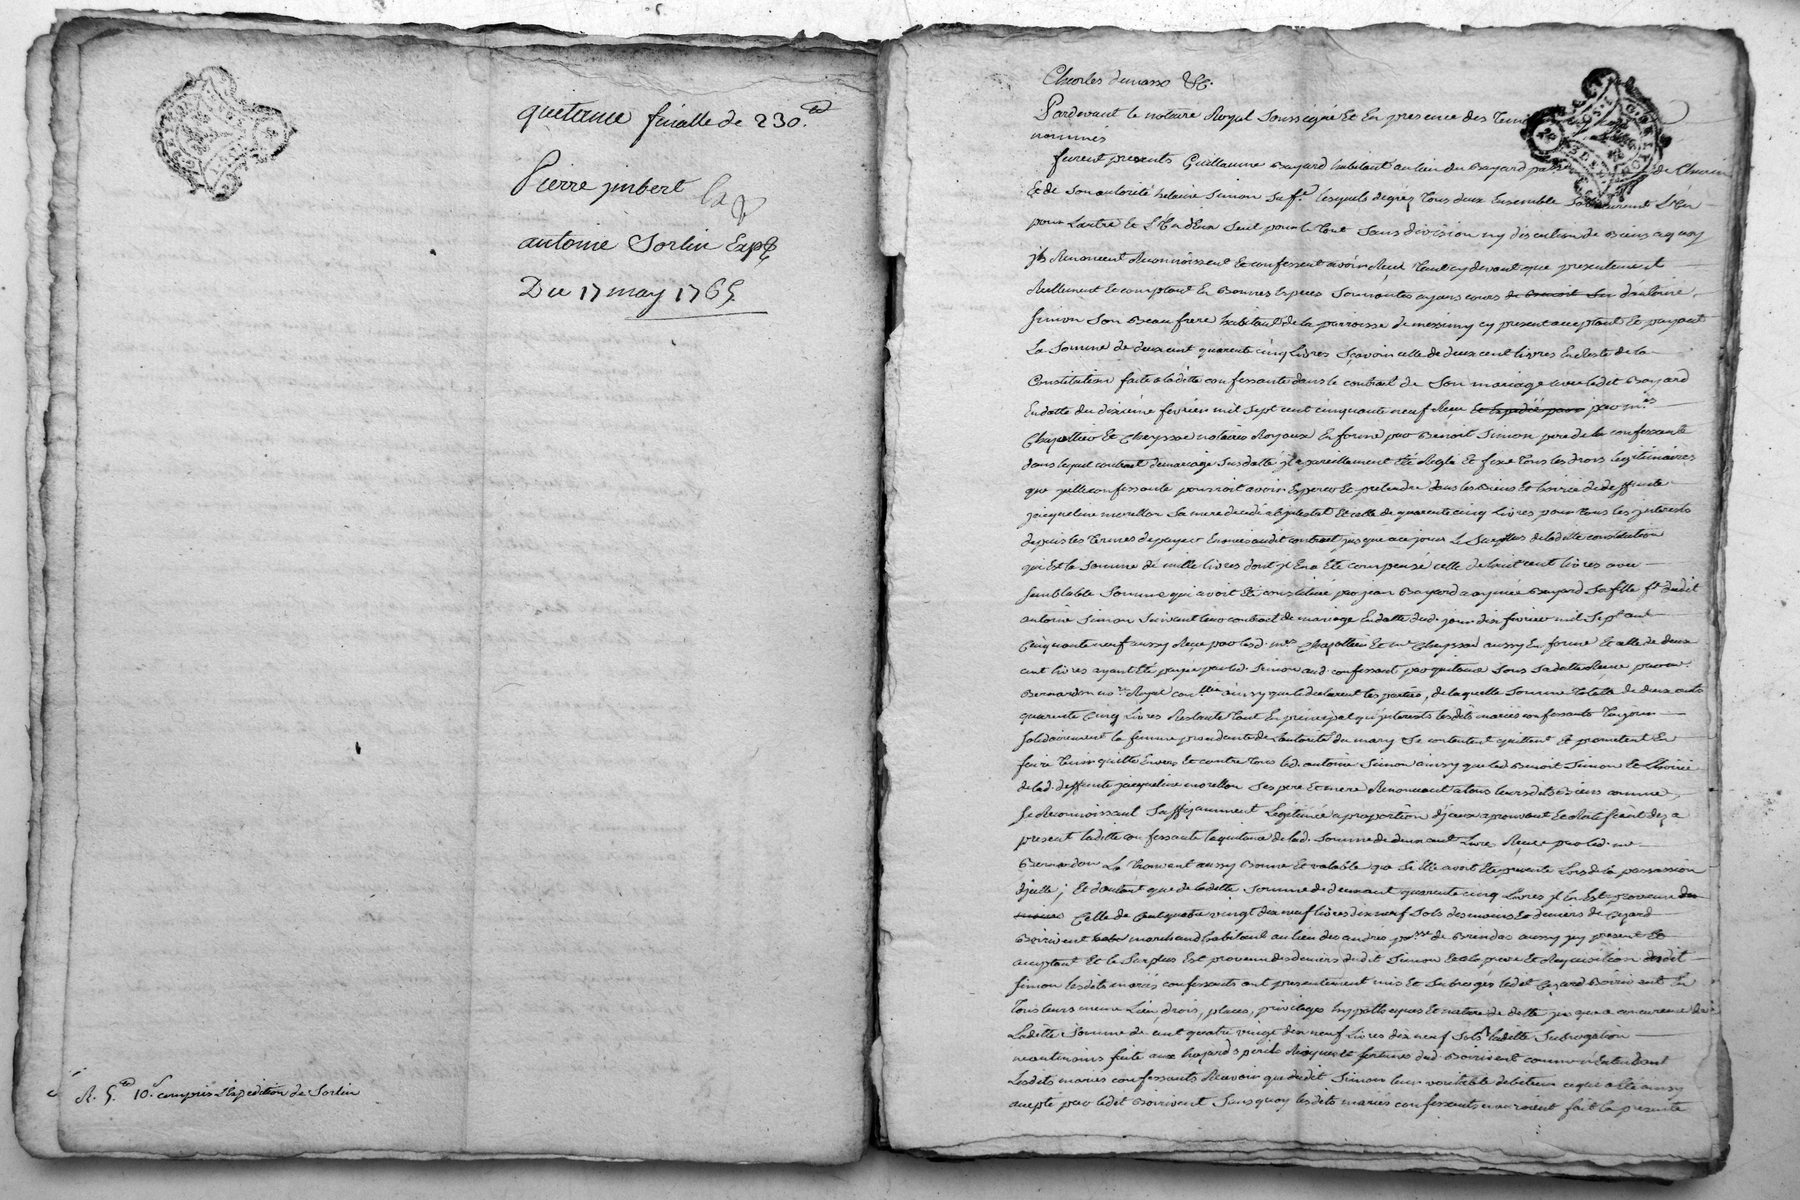 quittance finalle de 230.ᵗᵗ
Pierre jmbert
antoine Sorlin Exp
Du 17 may 1765
R. 5.ᵗᵗ 10.ˢ compris l'expedition de Sorlin
Charles &c.
Pardevant le notaire Royal Soussigné Et En presence des
nommés
furent presents Guillaume Bayard habitant au lieu du Bayard
Et de Son autorité Simon Sa f.ᵉ lesquels de grés tous deux Ensemble L'Un
pour L'autre Seul pour le tout Sans division ny discution de biens a quoy
jls Renoncent Reconnoissent Et confessent avoir Reçu tant cy devant que presentement
Reellement Et comptant En bonnes Especes Sonnantes ayans cours d'antoine
Simon Son beau frere habitant de la parroisse de messimy cy present acceptant Et payant
La Somme de deux cent quarente cinq Livres Sçavoir celle de deux cent livres En Reste de la
Constitution faite a la dite confessante dans le contrat de Son mariage avec ledit Bayard
En datte du dixieme fevrier mil Sept cent cinquante neuf Reçu par m.ᵉˢ
Chapottier Et notaires Royaux En forme par Benoit Simon pere de la confessante
dans lequel contrat de mariage Susdatté jl a pareillement Eté Reglé Et fixé tous les droits legitimaires
que jcelle confessante pourroit avoir Esperer Et pretendre dans les biens Et hoirie de deffunte
jacqueline morellon Sa mere decedée abjntestat Et celle de quarente cinq Livres pour tous les jnterets
depuis les termes de payer Enoncés audit contrat jusqu'a ce jour Le Surplus de ladite constitution
qui Est la Somme de mille livres dont jl En a Eté compensé celle de huit cent livres avec
Semblable Somme qui avoit Eté constituée par jean Bayard a Bayard Sa fille f.ᵉ dudit
antoine Simon Suivant leur contrat de mariage En datte dud. jour dix fevrier mil Sept cent
Cinquante neuf aussy Reçu par lesd. m.ᵉˢ Chapottier Et aussy En forme Et celle de deux
cent livres ayant Eté payée par led. Simon aud. confessant par quittance Sous Sa datte Reçue par m.ᵉ
Bernardon no.ʳᵉ Royal ainsy que le declarent les parties, de laquelle Somme totale de deux cents
quarente Cinq Livres Restante tant En principal qu'jnterets lesdits mariés confessants toujours
Solidairement la femme procedante de L'autorité du mary Se contentent quittent Et promettent En
faire tenir quitte Envers Et contre tous led. antoine Simon ainsy que led. Benoit Simon Et L'hoirie
de lad. deffunte jacqueline morellon Ses pere Et mere Renonceant a tous leursdits biens comme
Se Reconnoissant Suffisamment Legitimée a proportion d'jceux aprouvant Et Ratifiant des a
present ladite confessante la quittance de lad. Somme de deux cent Livres Reçue par led. m.ᵉ
Bernardon La trouvant aussy bonne Et valable que Si Elle avoit Eté presente Lors de la passation
d'jcelle; Et d'autant que de ladite Somme de deux cent quarente cinq Livres jl En Est provenu
Celle de Cent quatre vingt dix neuf livres dix neuf Sols des mains Et deniers de Cezard
Boirivent marchand habitant au lieu des andres par.ˢˢᵉ de Brindas aussy cy present Et
acceptant Et le Surplus Est provenu des deniers dudit Simon Et a la priere Et Requisition dudit
Simon lesdits mariés confessants ont presentement mis Et Subrogés ledit Cezard Boirivent En
Tous leurs meme Lieu, droits, places, privileges hypotheques Et nature de dette jusqu'a concurence de
Ladite Somme de cent quatre vingt dix neuf Livres dix neuf Sols ladite Subrogation
neantmoins faite aux hazards perils Risques Et fortunes dud. Boirivent comme n'Entendant
Lesdits mariés confessants Recevoir que dudit Simon leur veritable debiteur ce qui a Eté aussy
accepté par ledit Boirivent Sans quoy lesdits mariés confessants n'auroient fait la presente